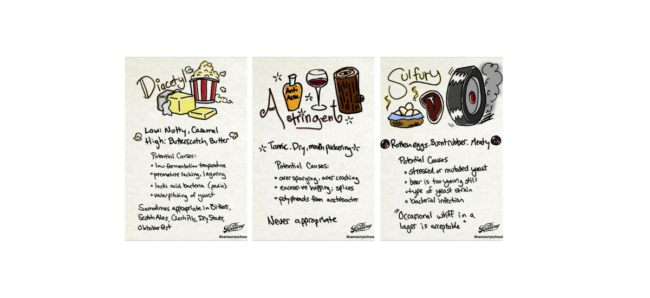 Diacetyl
Low: Nutty, Caramel
High: Butterscotch, Butter
Potential Causes:
• low fermentation temperature
• premature racking, lagering
• lactic acid bacteria (pedio)
• underpitching of yeast
Sometimes appropriate in Bitters,
Scotch Ales, Czech Pils, Dry Stouts,
Oktoberfest
#sensoryschool
Anti
Acne
Astringent
Tannic, Dry, mouth puckering
Potential Causes:
• over sparging, over crushing
• excessive hopping, spices
• polyphenols from acetobacter
Never appropriate
#sensoryschool
Sulfury
Rotten eggs, Burnt rubber, Meaty
Potential Causes
• stressed or mutated yeast
• beer is too young still
• type of yeast strain
• bacterial infection
"Occasional whiff in a
lager is acceptable"
#sensoryschool